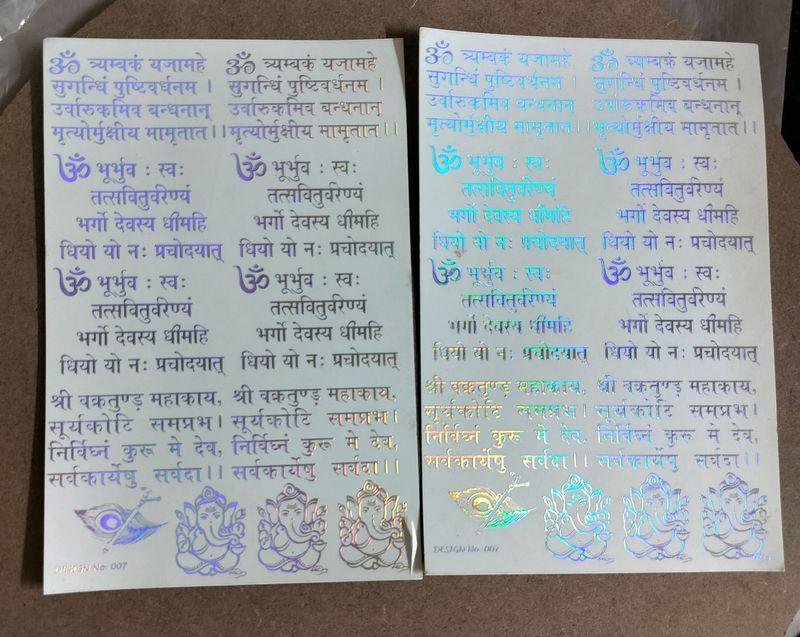 ॐ त्र्यम्बकं यजामहे
सुगन्धिं पुष्टिवर्धनम ।
उर्वारुकमिव बन्धनान्
मृत्योर्मुक्षीय मामृतात।।
ॐ त्र्यम्बकं यजामहे
सुगन्धिं पुष्टिवर्धनम ।
उर्वारुकमिव बन्धनान्
मृत्योर्मुक्षीय मामृतात।।
ॐ भूर्भुव : स्वः
तत्सवितुर्वरेण्यं
भर्गो देवस्य धीमहि
धियो यो नः प्रचोदयात्
ॐ भूर्भुव : स्वः
तत्सवितुर्वरेण्यं
भर्गो देवस्य धीमहि
धियो यो नः प्रचोदयात्
ॐ भूर्भुव : स्वः
तत्सवितुर्वरेण्यं
भर्गो देवस्य धीमहि
धियो यो नः प्रचोदयात्
ॐ भूर्भुव : स्वः
तत्सवितुर्वरेण्यं
भर्गो देवस्य धीमहि
धियो यो नः प्रचोदयात्
श्री वक्रतुण्ड महाकाय,
सूर्यकोटि समप्रभ।
निर्विघ्नं कुरू मे देव,
सर्वकार्येषु सर्वदा।।
श्री वक्रतुण्ड महाकाय,
सूर्यकोटि समप्रभ।
निर्विघ्नं कुरू मे देव,
सर्वकार्येषु सर्वदा।।
DESIGN No. 007
ॐ त्र्यम्बकं यजामहे
सुगन्धिं पुष्टिवर्धनम ।
उर्वारुकमिव बन्धनान्
मृत्योर्मुक्षीय मामृतात।।
ॐ त्र्यम्बकं यजामहे
सुगन्धिं पुष्टिवर्धनम ।
उर्वारुकमिव बन्धनान्
मृत्योर्मुक्षीय मामृतात।।
ॐ भूर्भुव : स्वः
तत्सवितुर्वरेण्यं
भर्गो देवस्य धीमहि
धियो यो नः प्रचोदयात्
ॐ भूर्भुव : स्वः
तत्सवितुर्वरेण्यं
भर्गो देवस्य धीमहि
धियो यो नः प्रचोदयात्
ॐ भूर्भुव : स्वः
तत्सवितुर्वरेण्यं
भर्गो देवस्य धीमहि
धियो यो नः प्रचोदयात्
ॐ भूर्भुव : स्वः
तत्सवितुर्वरेण्यं
भर्गो देवस्य धीमहि
धियो यो नः प्रचोदयात्
श्री वक्रतुण्ड महाकाय,
सूर्यकोटि समप्रभ।
निर्विघ्नं कुरू मे देव,
सर्वकार्येषु सर्वदा।।
श्री वक्रतुण्ड महाकाय,
सूर्यकोटि समप्रभ।
निर्विघ्नं कुरू मे देव,
सर्वकार्येषु सर्वदा।।
DESIGN No. 007